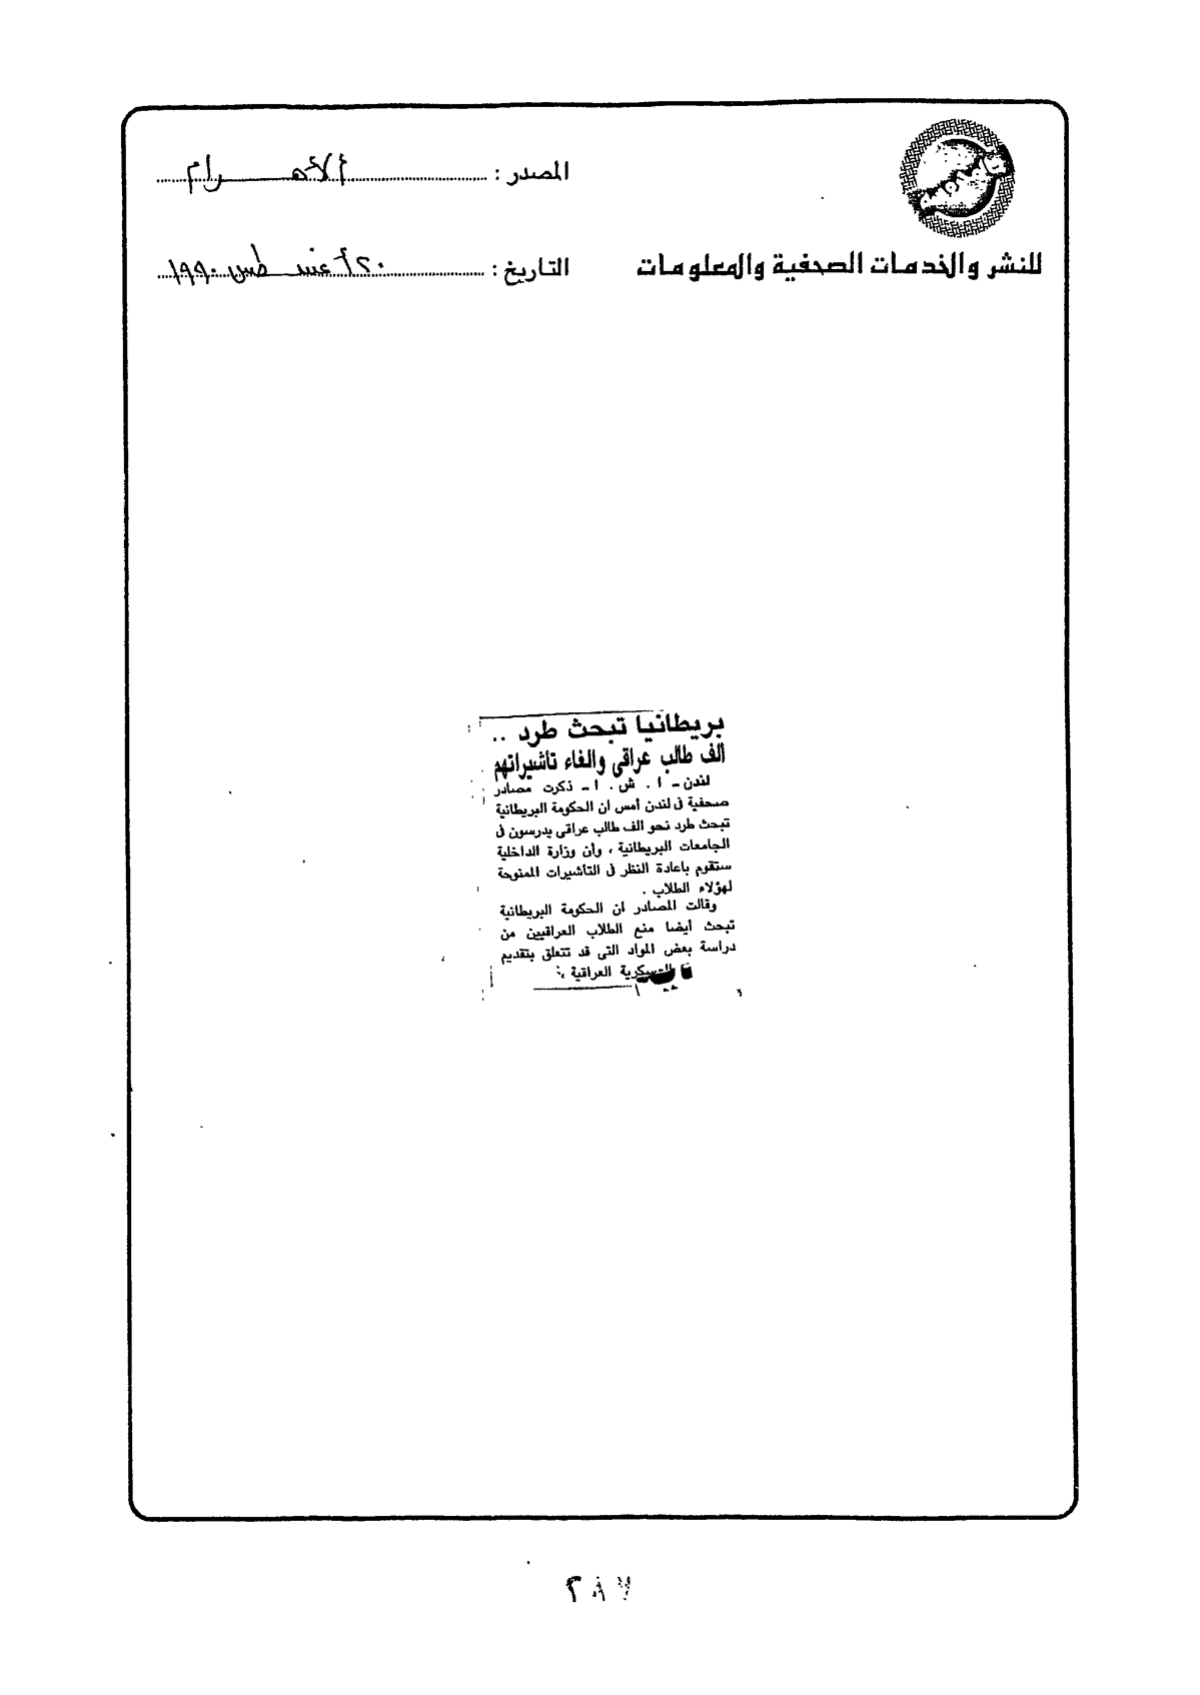 المصدر : الأهرام
للنشر والخدمات الصحفية والمعلومات
التاريخ : ٢٠ أغسطس ١٩٩٠
بريطانيا تبحث طرد ..
ألف طالب عراقى والغاء تأشيراتهم
لندن ـ ا . ش . ا ـ ذكرت مصادر
صحفية فى لندن أمس ان الحكومة البريطانية
تبحث طرد نحو الف طالب عراقى يدرسون فى
الجامعات البريطانية ، وأن وزارة الداخلية
ستقوم باعادة النظر فى التأشيرات الممنوحة
لهؤلاء الطلاب .
وقالت المصادر ان الحكومة البريطانية
تبحث أيضا منع الطلاب العراقيين من
دراسة بعض المواد التى قد تتعلق بتقديم
العسكرية العراقية .
٢٨٧